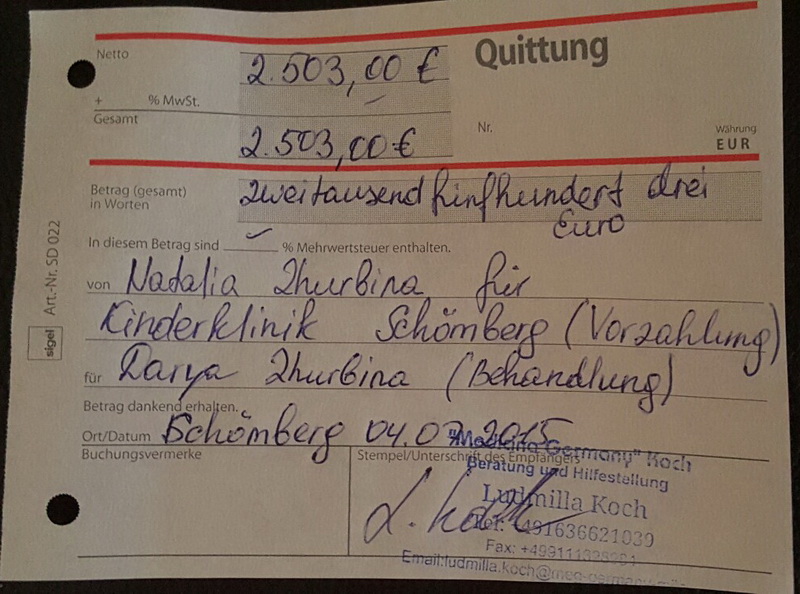 Quittung
Netto 2.503,00 €
+ % MwSt.
Gesamt 2.503,00 €
Nr.
Währung
EUR
Betrag (gesamt)
in Worten
zweitausend fünfhundert drei
Euro
In diesem Betrag sind % Mehrwertsteuer enthalten.
von Natalia Zhurbina für
Kinderklinik Schömberg (Vorzahlung)
für Darya Zhurbina (Behandlung)
Betrag dankend erhalten.
Ort/Datum Schömberg 04.07.2015
Buchungsvermerke
Stempel/Unterschrift des Empfängers
Germany" Koch
Beratung und Hilfestellung
Ludmilla Koch
L. Koch
Tel: +491636621039
Fax:
Email:ludmilla.koch@
sigel Art.-Nr. SD 022